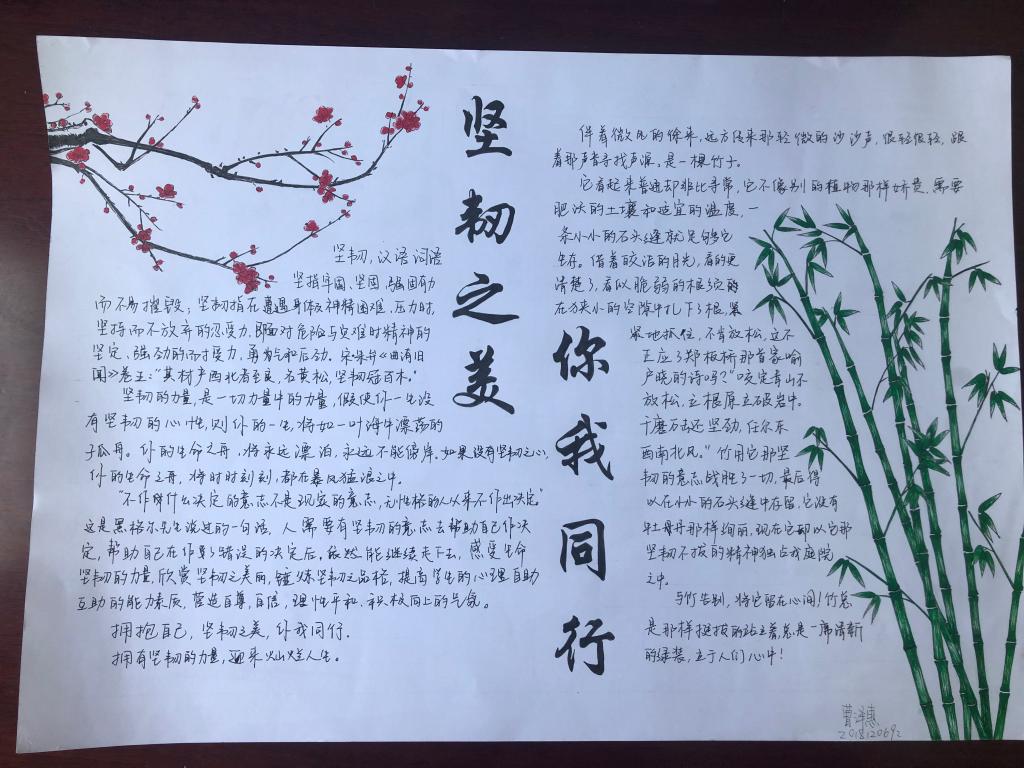 坚韧之美
你我同行
坚韧,汉语词语
坚指牢固、坚固,强固有力
而不易摧毁;坚韧指在遭遇身体及神精困难、压力时,
坚持而不放弃的忍受力,即面对危险与灾难时精神的
坚定、强劲的耐受力,勇气和后劲。宋朱弁《曲洧旧
闻》卷三:“其材产西北者至良,名黄松,坚韧冠百木。”
坚韧的力量,是一切力量中的力量,假使你一生没
有坚韧的心性,则你的一生,将如一叶海中漂荡的
孤舟。你的生命之舟,将永远漂泊,永远不能傍岸。如果没有坚韧之心,
你的生命之舟,将时时刻刻,都在暴风猛浪之中。
“不作什么决定的意志不是现实的意志,无性格的人从来不作出决定”
这是黑格尔先生说过的一句话,人需要有坚韧的意志去帮助自己作决
定,帮助自己在作了错误的决定后,依然能继续走下去,感受生命
坚韧的力量,欣赏坚韧之美丽,锤炼坚韧之品格,提高学生的心理自助
互助的能力素质,营造自尊,自信,理性平和、积极向上的气氛。
拥抱自己,坚韧之美,你我同行.
拥有坚韧的力量,迎来灿烂人生。
伴着微风的徐来,远方传来那轻微的沙沙声,很轻很轻,跟
着那声音寻找声源,是一棵竹子。
它看起来普通却非比寻常,它不像别的植物那样娇贵,需要
肥沃的土壤和适宜的温度,一
条小小的石头缝就足够它
生存。借着皎洁的月光,看的更
清楚了,看似脆弱的根须
在万狭小的空隙中扎下了根,紧
紧地抓住,不肯放松,这不
正应了郑板桥那首家喻
户晓的诗吗?“咬定青山不
放松,立根原在破岩中。
千磨万击还坚劲,任尔东
西南北风。”竹用它那坚
韧的意志战胜了一切,最后得
以在小小的石头缝中存留,它没有
牡丹那样绚丽,现在它却以它那
坚韧不拔的精神独占我庭院
之中.
与竹告别,将它留在心间!竹总
是那样挺拔的站立着,总是一席清新
的绿装,立于人们心中!
曹泽惠
2018120692